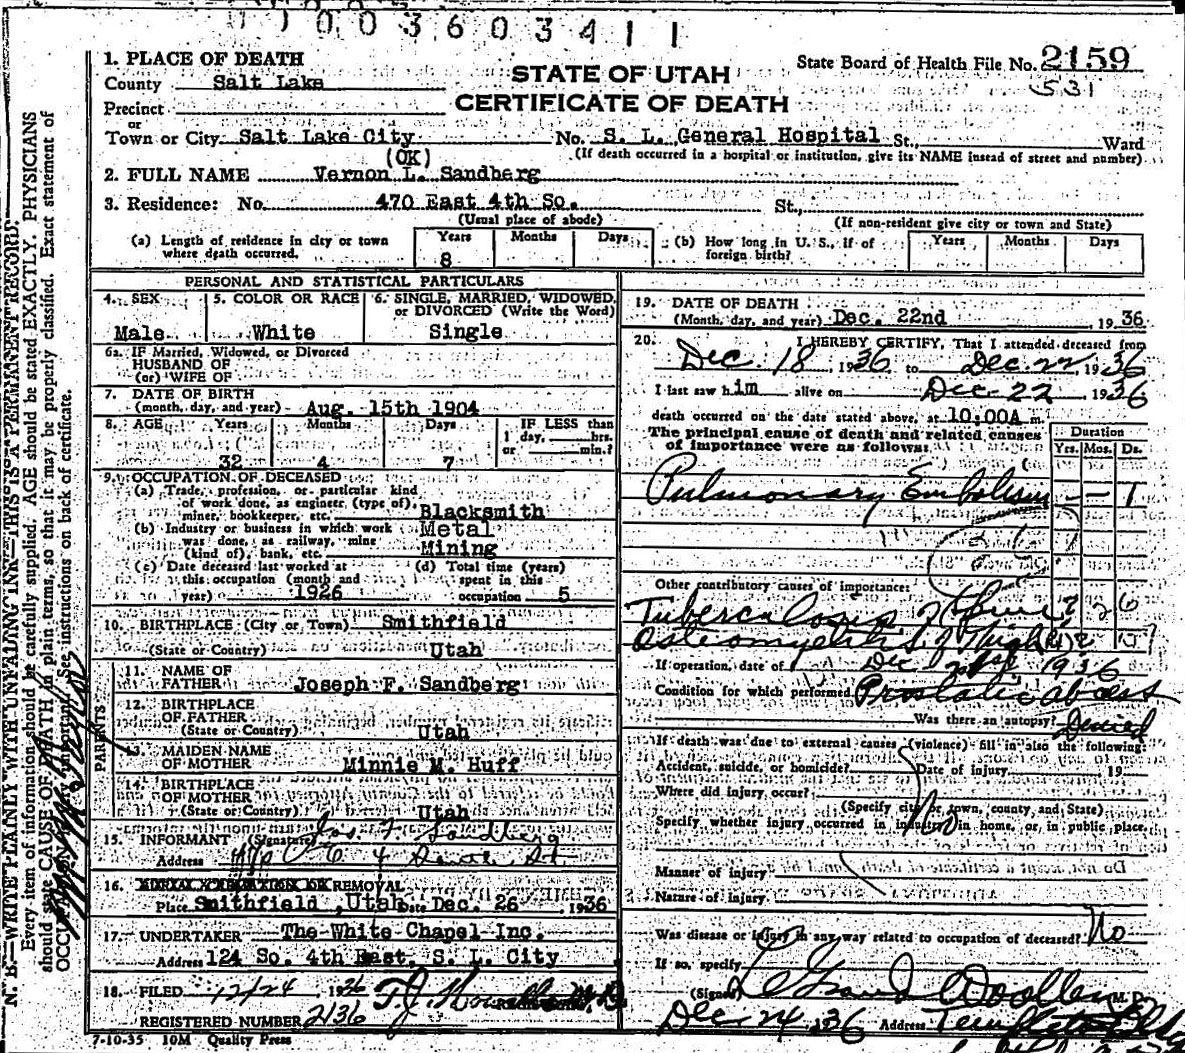 1003603411
1. PLACE OF DEATH
STATE OF UTAH
CERTIFICATE OF DEATH
State Board of Health File No. 2159
531
County Salt Lake
Precinct
or
Town or City Salt Lake City No. S. L. General Hospital St., Ward
(If death occurred in a hospital or institution, give its NAME instead of street and number)
(OK)
2. FULL NAME Vernon L. Sandberg
3. Residence: No. 470 East 4th So. St.,
(Usual place of abode) (If non-resident give city or town and State)
(a) Length of residence in city or town where death occurred. Years 8 Months Days
(b) How long in U. S., if of foreign birth? Years Months Days
PERSONAL AND STATISTICAL PARTICULARS
4. SEX Male
5. COLOR OR RACE White
6. SINGLE, MARRIED, WIDOWED, or DIVORCED (Write the Word) Single
6a. IF Married, Widowed, or Divorced
HUSBAND OF
(or) WIFE OF
7. DATE OF BIRTH
(month, day, and year) Aug. 15th 1904
8. AGE Years 32 Months 4 Days 7 IF LESS than 1 day, hrs. or min.?
9. OCCUPATION OF DECEASED
(a) Trade, profession, or particular kind of work done, as engineer (type of), miner, bookkeeper, etc. Blacksmith
(b) Industry or business in which work was done, as railway, mine (kind of), bank, etc. Metal Mining
(c) Date deceased last worked at this occupation (month and year) 1926
(d) Total time (years) spent in this occupation 5
10. BIRTHPLACE (City or Town) Smithfield
(State or Country) Utah
PARENTS
11. NAME OF FATHER Joseph F. Sandberg
12. BIRTHPLACE OF FATHER
(State or Country) Utah
13. MAIDEN NAME OF MOTHER Minnie M. Huff
14. BIRTHPLACE OF MOTHER
(State or Country) Utah
15. INFORMANT (Signature) Jos F Sandberg
Address
16. BURIAL CREMATION OR REMOVAL
Place Smithfield, Utah Date Dec. 26 1936
17. UNDERTAKER The White Chapel Inc.
Address 124 So. 4th East, S. L. City
18. FILED 12/24 1936
REGISTERED NUMBER 2136
7-10-35 10M Quality Press
19. DATE OF DEATH
(Month, day, and year) Dec. 22nd, 1936
20. I HEREBY CERTIFY, That I attended deceased from
Dec 18 1936 to Dec 22 1936
I last saw him alive on Dec 22 1936
death occurred on the date stated above, at 10:00A m.
The principal cause of death and related causes of importance were as follows: Duration Yrs. Mos. Ds.
Pulmonary Embolism — — 1
Other contributory causes of importance:
Tuberculosis of Spine
Osteomyelitis of Thigh
If operation, date of Dec 21st 1936
Condition for which performed Prostatic abcess
Was there an autopsy? Denied
If death was due to external causes (violence) fill in also the following:
Accident, suicide, or homicide? Date of injury 19
Where did injury occur?
(Specify city or town, county, and State)
Specify whether injury occurred in industry, in home, or in public place.
Manner of injury
Nature of injury
Was disease or injury in any way related to occupation of deceased? No
If so, specify
(Signed) Woolley M. D.
Dec 24 1936 Address Templeton Bldg
N. B.—WRITE PLAINLY WITH UNFADING INK—THIS IS A PERMANENT RECORD
Every item of information should be carefully supplied. AGE should be stated EXACTLY. PHYSICIANS
should state CAUSE OF DEATH in plain terms, so that it may be properly classified. Exact statement of
OCCUPATION is very important. See instructions on back of certificate.